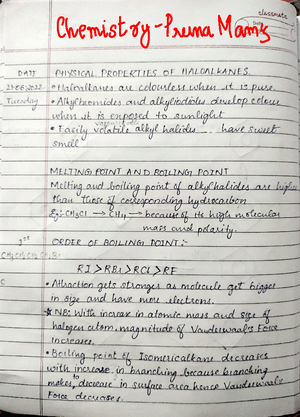 classmate
Date
Chemistry - Prerna Mam's
DATE PHYSICAL PROPERTIES OF HALOALKANES
21-06-2022 • Haloalkanes are colourless when it is pure.
Tuesday • Alkylbromides and alkyliodides develop colour
when it is exposed to sunlight
• Easily volatile alkyl halides have sweet
smell
MELTING POINT AND BOILING POINT
Melting and boiling point of alkyl halides are higher
than those of corresponding hydrocarbon
Eg:- CH3Cl → CH4 → because of its high molecular
mass and polarity.
ORDER OF BOILING POINT:-
RI > RBr > RCl > RF
• Attraction gets stronger as molecule get bigger
in size and have more electrons.
* NB: With increase in atomic mass and size of
halogen atom, magnitude of Vanderwaal's Force
increases.
• Boiling point of Isomericalkane decreases
with increase in branching because branching
makes decrease in surface area hence Vanderwaal's
Force decreases.